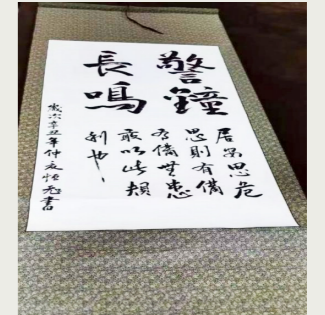 警鐘
長鳴
居安思危
思則有備
有備無患
敢以此
利也
歲次辛丑年仲夏書